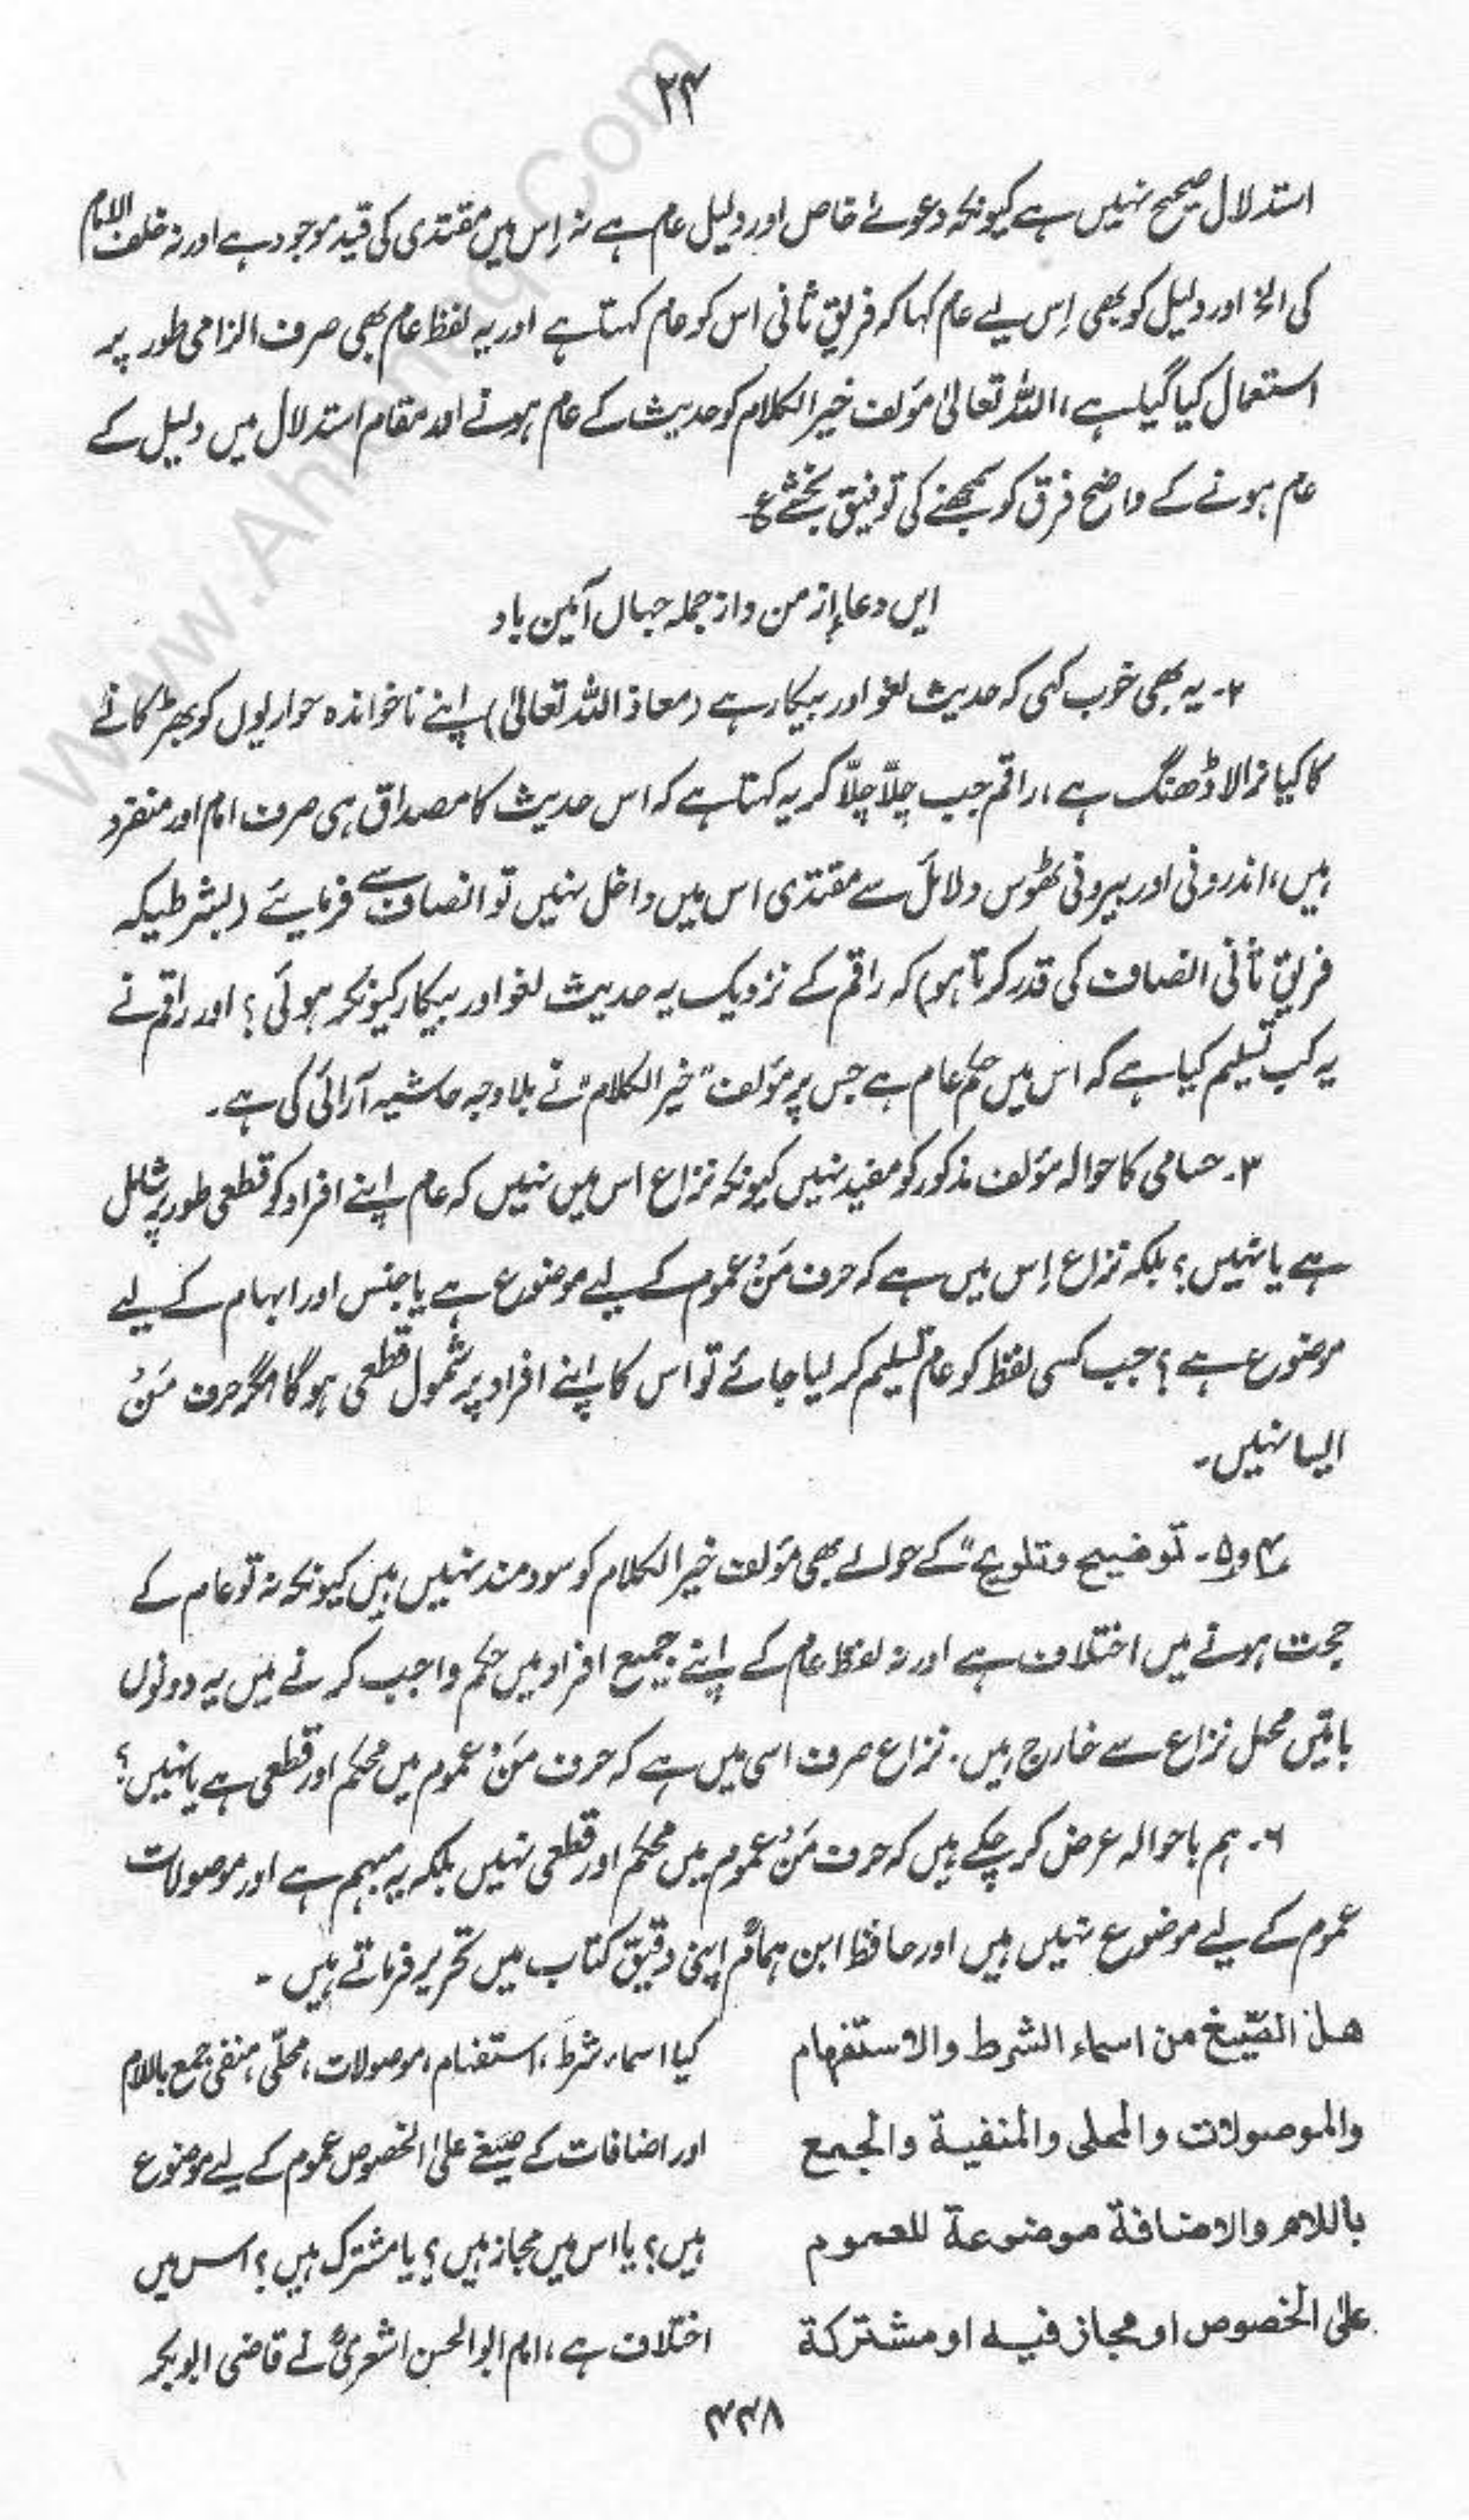 ۲۴
استدلال صحیح نہیں ہے کیونکہ دعوٰے خاص اور دلیل عام ہے نہ اِس میں مقتدی کی قید موجود ہے اور نہ خلف الامام
کی الخ اور دلیل کو بھی اِس لیے عام کہا کہ فریقِ ثانی اس کو عام کہتا ہے اور یہ لفظ عام بھی صرف الزامی طور پر
استعمال کیا گیا ہے، اللہ تعالیٰ مؤلف خیر الکلام کو حدیث کے عام ہونے اور مقام استدلال میں دلیل کے
عام ہونے کے واضح فرق کو سمجھنے کی توفیق بخشے ع
ایں دعا از من و از جملہ جہاں آمین باد
۲۔ یہ بھی خوب کہی کہ حدیث لغو اور بیکار ہے (معاذ اللہ تعالیٰ) اپنے ناخواندہ حواریوں کو بھڑکانے
کا کیا نرالا ڈھنگ ہے، راقم جب چلّا چلّا کر یہ کہتا ہے کہ اس حدیث کا مصداق ہی صرف امام اور منفرد
ہیں، اندرونی اور بیرونی ٹھوس دلائل سے مقتدی اس میں داخل نہیں تو انصاف سے فرمایئے (بشرطیکہ
فریقِ ثانی انصاف کی قدر کرتا ہو) کہ راقم کے نزدیک یہ حدیث لغو اور بیکار کیونکر ہوئی؟ اور راقم نے
یہ کب تسلیم کیا ہے کہ اس میں حکم عام ہے جس پر مؤلف "خیر الکلام" نے بلاوجہ حاشیہ آرائی کی ہے۔
۳۔ حسامی کا حوالہ مؤلف مذکور کو مفید نہیں کیونکہ نزاع اس میں نہیں کہ عام اپنے افراد کو قطعی طور پر شامل
ہے یا نہیں؟ بلکہ نزاع اِس میں ہے کہ حرف مَنْ عموم کے لیے موضوع ہے یا جنس اور ابہام کے لیے
موضوع ہے؟ جب کسی لفظ کو عام تسلیم کر لیا جائے تو اس کا اپنے افراد پر شمول قطعی ہوگا مگر حرف مَنْ
ایسا نہیں۔
۴ و ۵۔ توضیح و تلویح" کے حوالے بھی مؤلف خیر الکلام کو سودمند نہیں ہیں کیونکہ نہ تو عام کے
حجت ہونے میں اختلاف ہے اور نہ لفظ عام کے اپنے جمیع افراد میں حکم واجب کرنے میں یہ دونوں
باتیں محل نزاع سے خارج ہیں۔ نزاع صرف اسی میں ہے کہ حرف مَنْ عموم میں محکم اور قطعی ہے یا نہیں؟
۶۔ ہم باحوالہ عرض کر چکے ہیں کہ حرف مَنْ عموم میں محکم اور قطعی نہیں بلکہ یہ مبہم ہے اور موصولات
عموم کے لیے موضوع نہیں ہیں اور حافظ ابن ہمامؒ اپنی دقیق کتاب میں تحریر فرماتے ہیں۔
هل الصّیغ من اسماء الشرط والاستفهام
والموصولات والمحلی والمنفیة والجمع
باللام والاضافة موضوعة للعموم
علی الخصوص او مجاز فیه او مشترکة
کیا اسماء شرط، استفہام، موصولات، محلّٰی، منفی، جمع باللام
اور اضافات کے صیغے علی الخصوص عموم کے لیے موضوع
ہیں؟ یا اس میں مجاز ہیں؟ یا مشترک ہیں؟ اس میں
اختلاف ہے، امام ابو الحسن اشعریؒ نے قاضی ابوبکر
۴۴۸
www.Ahlehaq.Com